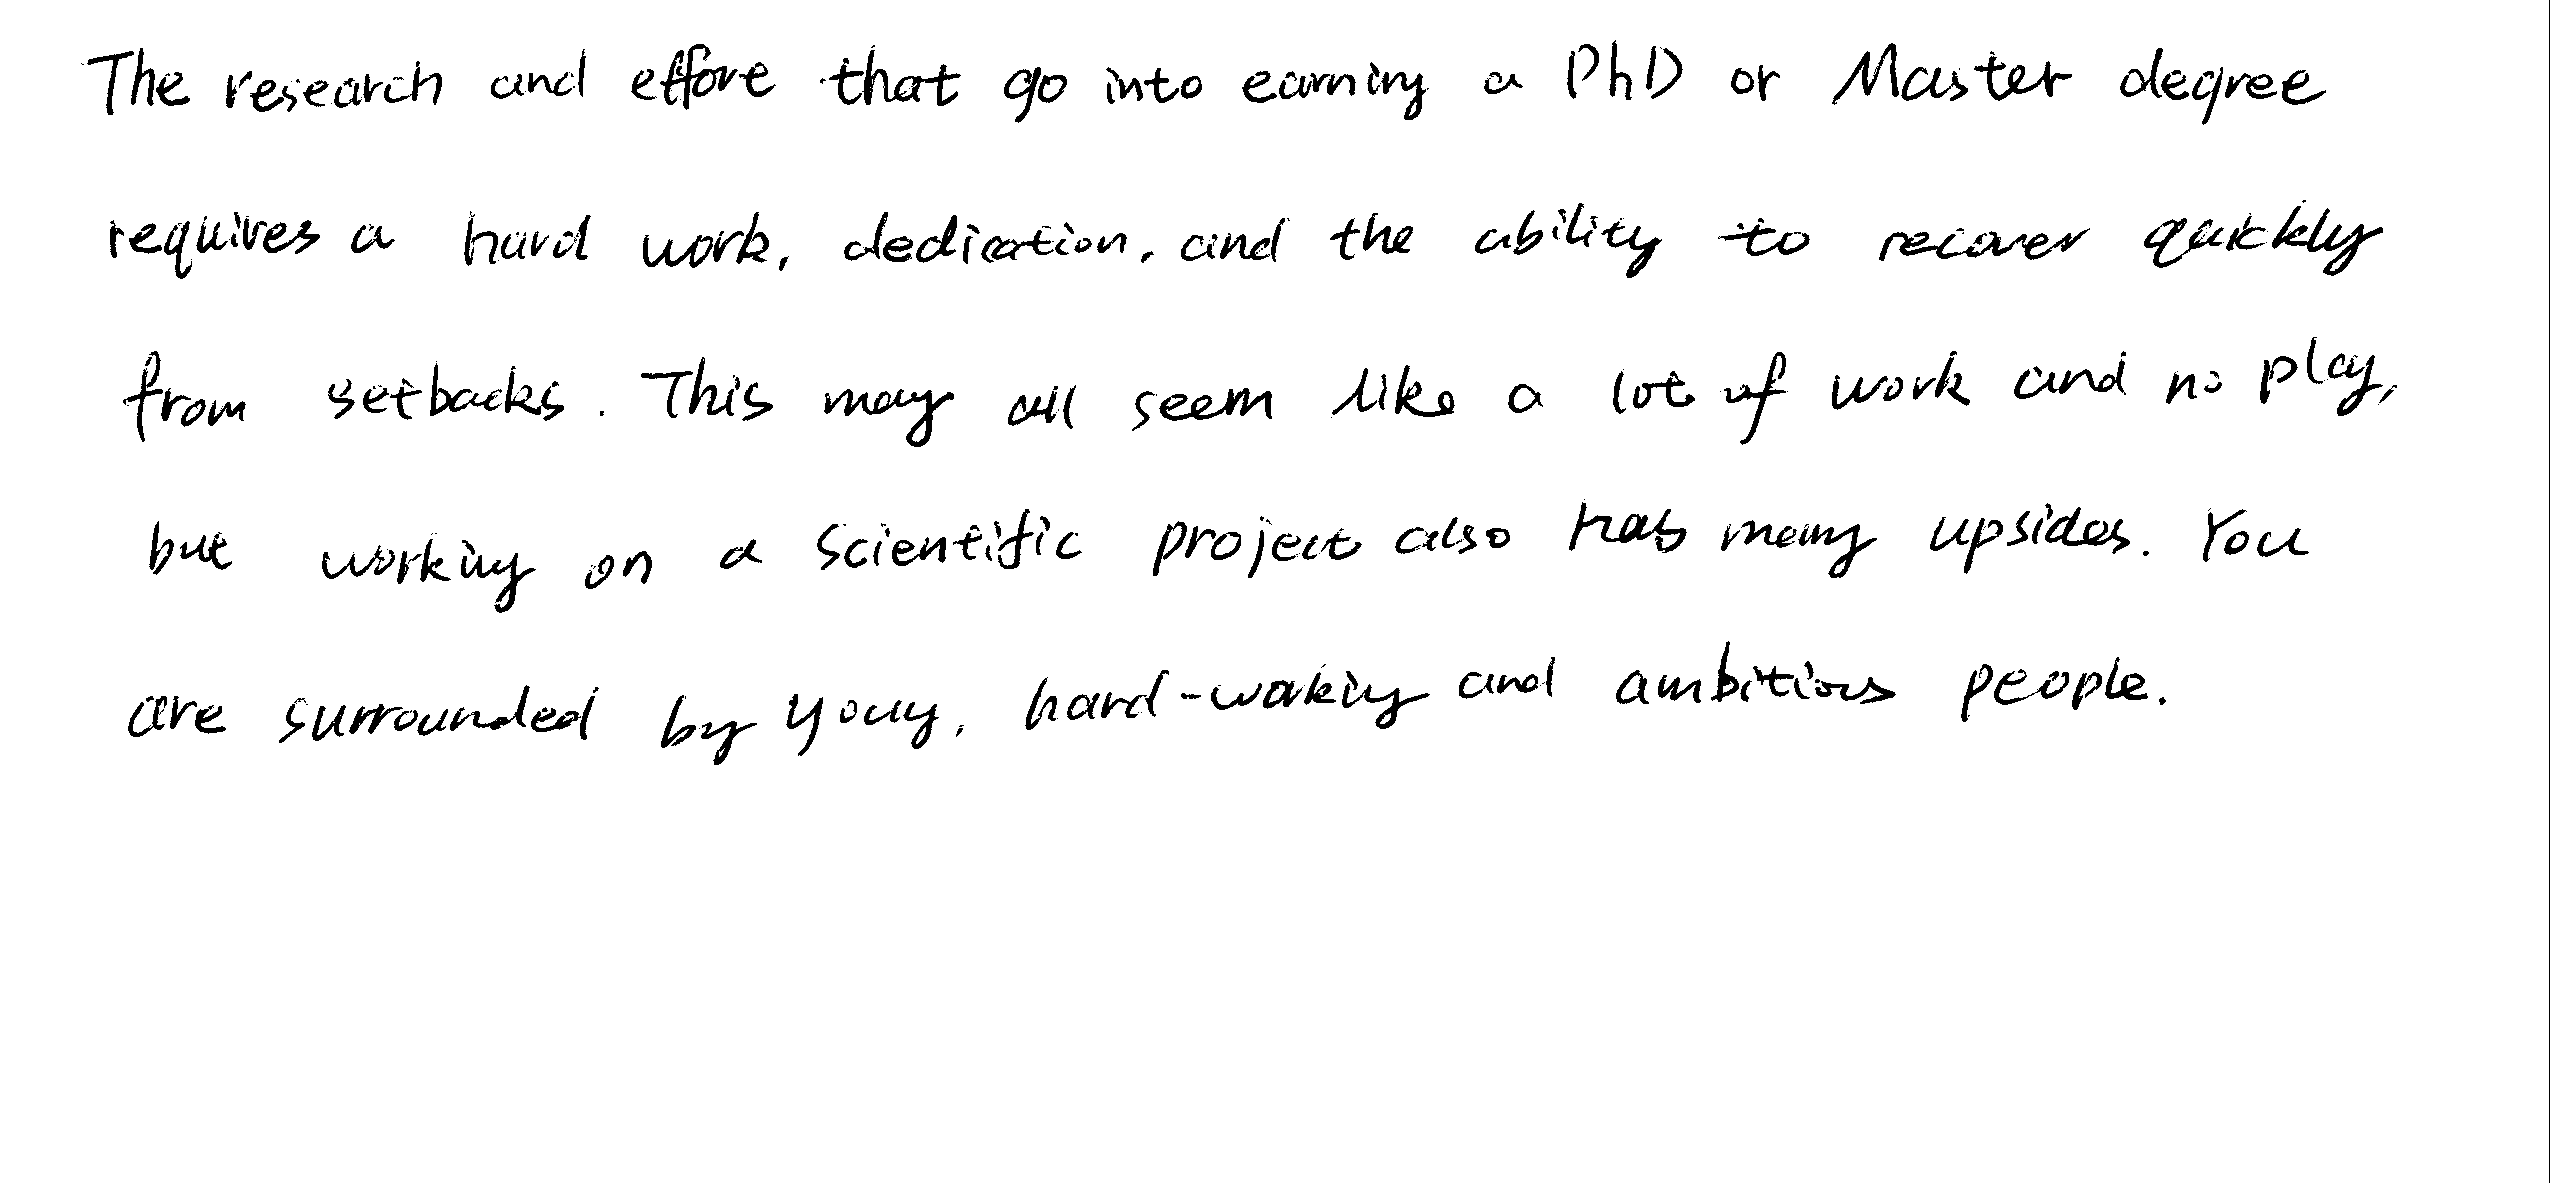 The research and effort that go into earning a PhD or Master degree
requires a hard work, dedication, and the ability to recover quickly
from setbacks. This may all seem like a lot of work and no play,
but working on a scientific project also has many upsides. You
are surrounded by young, hard-working and ambitious people.